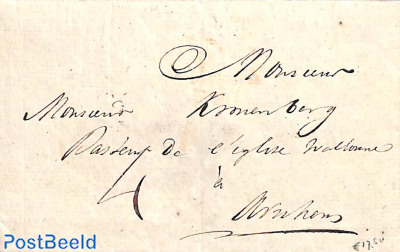 Monsieur
Monsieur Kronenberg
Pasteur de l'eglise Wallonne
à
Arnhem
€17.50
PostBeeld